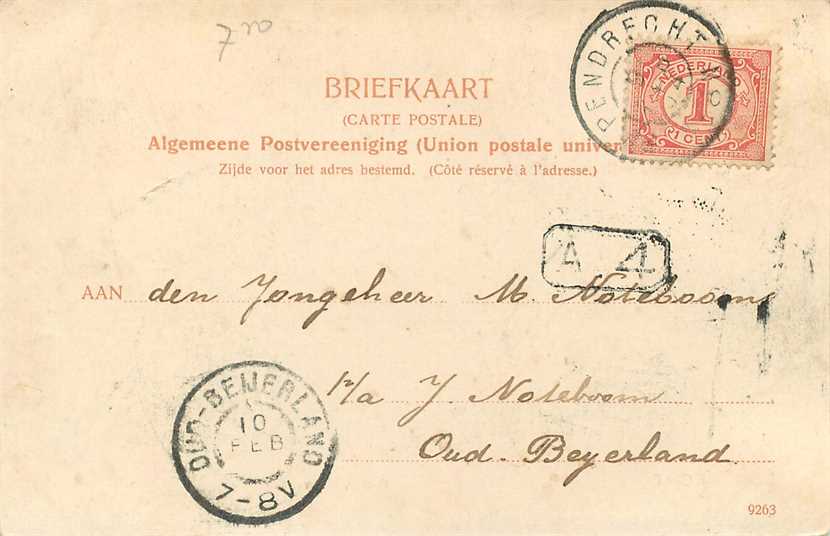 7 50
BRIEFKAART
(CARTE POSTALE)
Algemeene Postvereeniging (Union postale univer
Zijde voor het adres bestemd. (Côté réservé à l'adresse.)
PENDRECHT
NEDERLAND
1
1 CENT
A 4
AAN den Jongeheer M. Notebooms
p/a J. Noteboom
Oud-Beyerland
OUD-BEIJERLAND
10
FEB
7-8V
9263